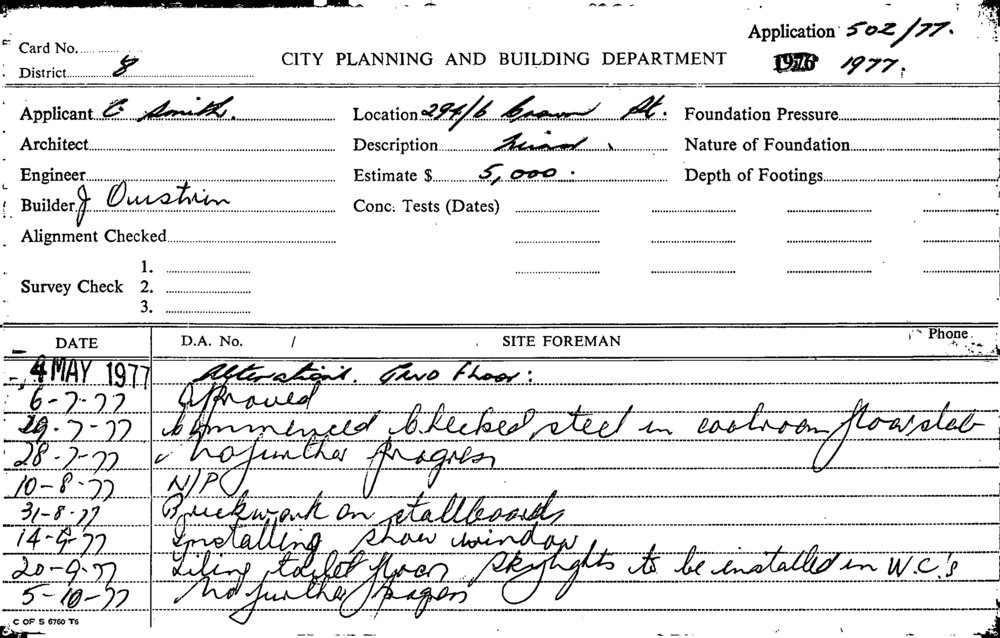 Application 502/77.
Card No.
District 8
CITY PLANNING AND BUILDING DEPARTMENT
1976 1977.
Applicant C Smith.
Location 294/6 Crown St.
Foundation Pressure
Architect
Description
Nature of Foundation
Engineer
Estimate $ 5,000.
Depth of Footings
Builder J
Conc. Tests (Dates)
Alignment Checked
Survey Check
1.
2.
3.
DATE D.A. No. / SITE FOREMAN Phone
4 MAY 1977 Alterations. Grnd Floor:
6-7-77 Approved
19-7-77 Commenced checked steel in coolroom floor slab
28-7-77 No further progress
10-8-77 N/P
31-8-77 Brickwork on stallboards
14-9-77 Installing show window
20-9-77 Tiling toilet floor, Skylights to be installed in W.C.'s
5-10-77 No further progress
C OF S 6760 T6